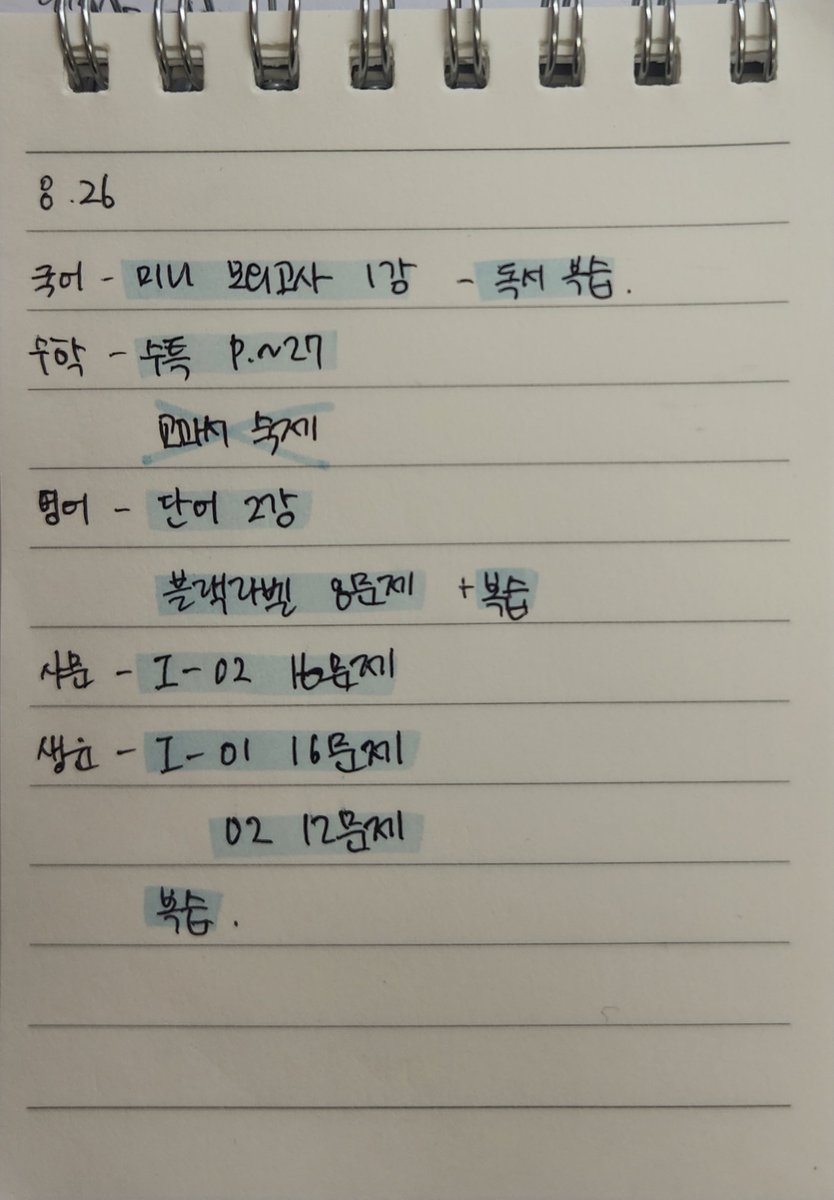 8.26
국어 - 미니 모의고사 1강 - 독서 복습.
수학 - 수특 P.~27
교과서 숙제
영어 - 단어 2강
블랙라벨 8문제 + 복습
사문 - I-02 16문제
생윤 - I-01 16문제
02 12문제
복습.